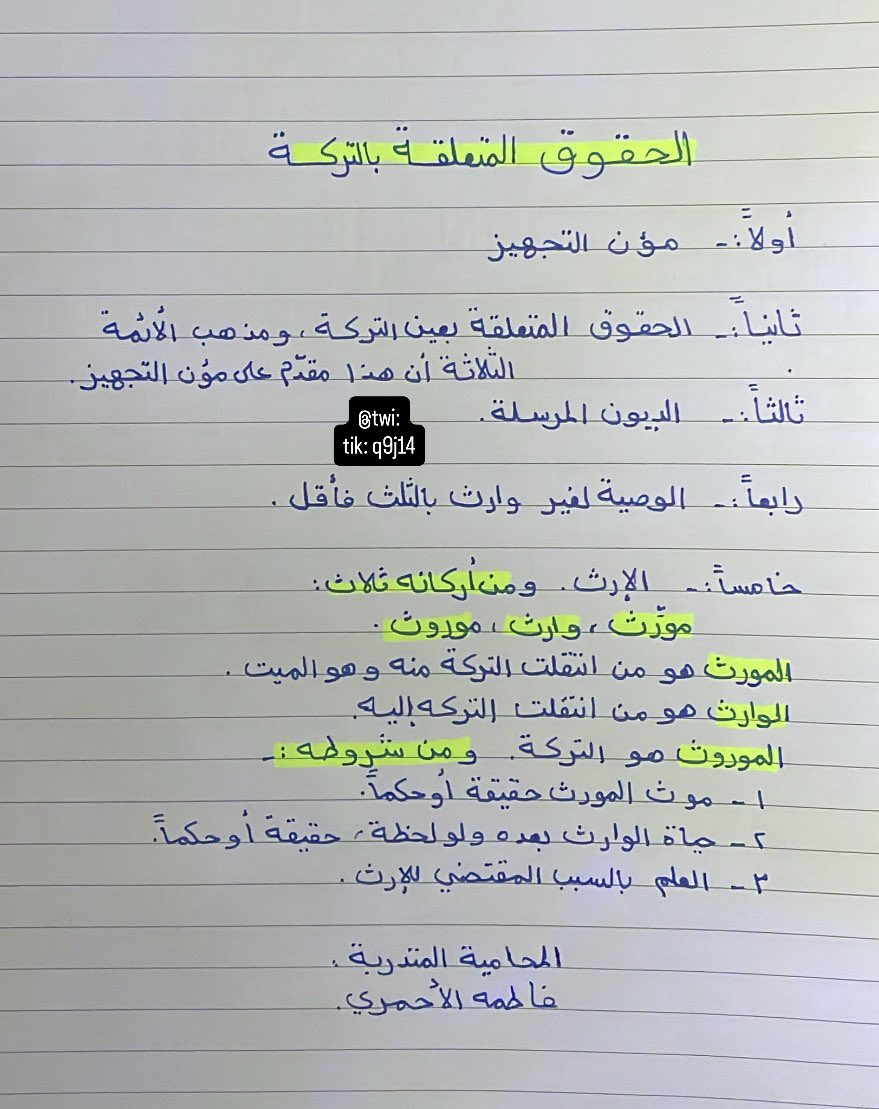 الحقوق المتعلقة بالتركة
أولاً:- مؤن التجهيز
ثانياً:- الحقوق المتعلقة بعين التركة، ومذهب الأئمة
الثلاثة أن هذا مقدّم على مؤن التجهيز.
ثالثاً:- الديون المرسلة.
@twi:
tik: q9j14
رابعاً:- الوصية لغير وارث بالثلث فأقل.
خامساً:- الإرث. ومن أركانه ثلاث:
مورِّث، وارث، موروث.
المورث هو من انتقلت التركة منه وهو الميت.
الوارث هو من انتقلت التركه إليه.
الموروث هو التركة. ومن شروطه:-
١- موت المورث حقيقة أو حكماً.
٢- حياة الوارث بعده ولو لحظة، حقيقة أو حكماً.
٣- العلم بالسبب المقتضي للإرث.
المحامية المتدربة.
فاطمه الأحمري.